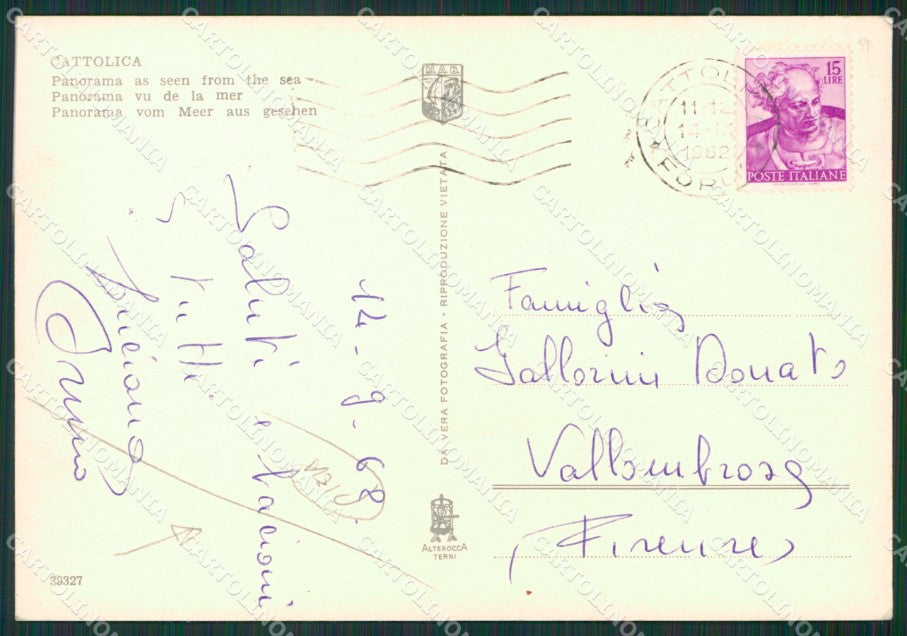 CATTOLICA
Panorama as seen from the sea
Panorama vu de la mer
Panorama vom Meer aus gesehen
15
LIRE
POSTE ITALIANE
11-12
14-IX
1962
14-9-62.
Saluti e bacioni
a tutti
Luciana
Bruno
DA VERA FOTOGRAFIA - RIPRODUZIONE VIETATA
Famiglia
Gallorini Donato
Vallombrosa
(Firenze)
ALTEROCCA
TERNI
39327
CARTOLINOMANIA